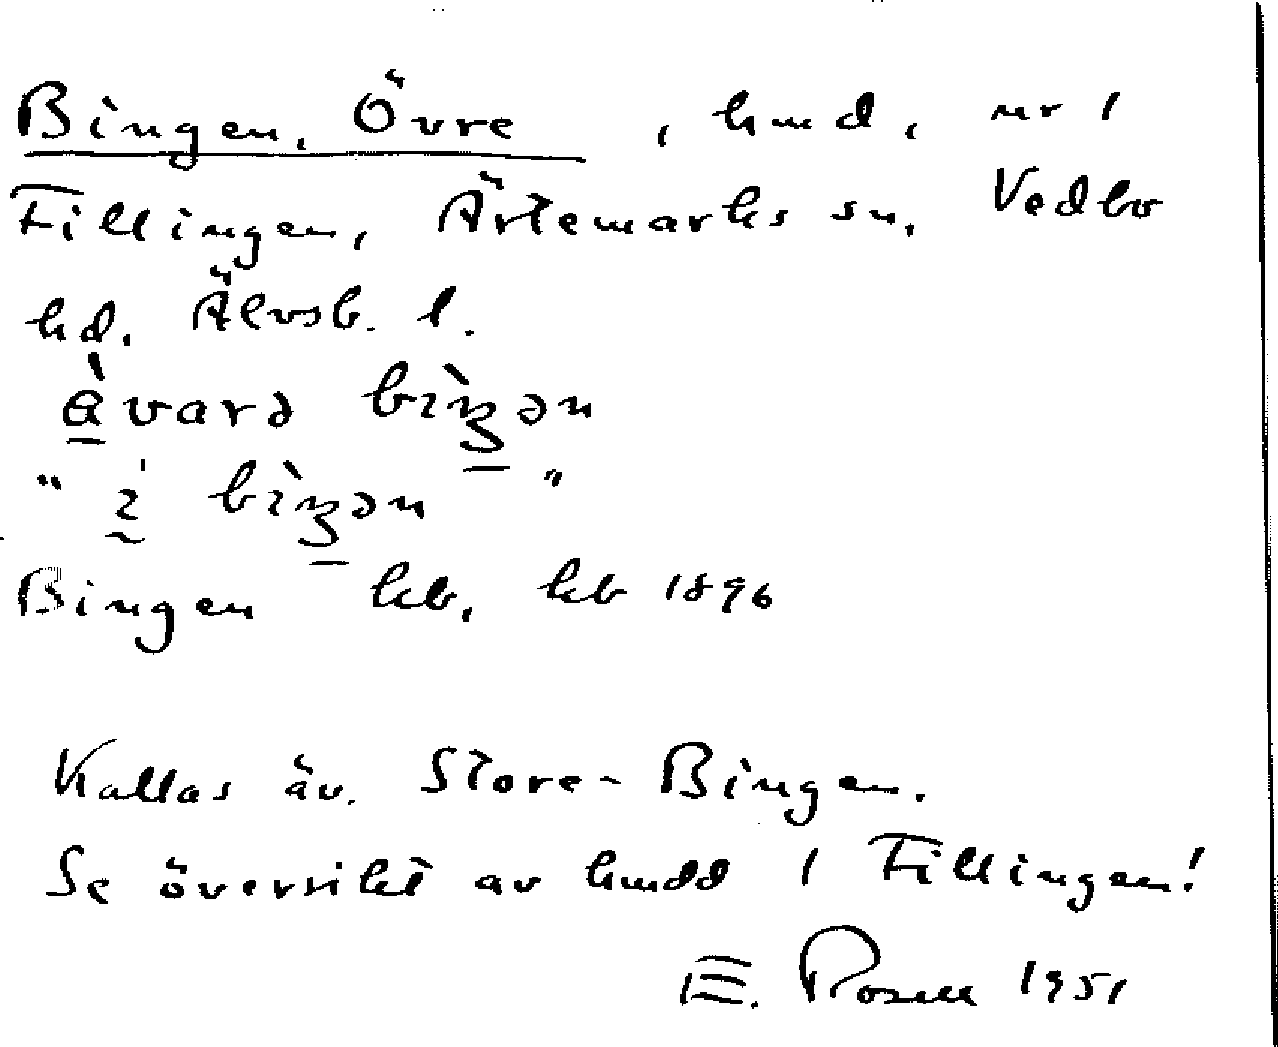 Bingen, Övre, hmd, nr 1
Fillingen, Ärtemarks sn, Vedbo
hd. Älvsb. l.
Bingen hb, kb 1896
Kallas äv. Store-Bingen.
Se översikt av hmdd 1 Fillingen!
E. Rosell 1951